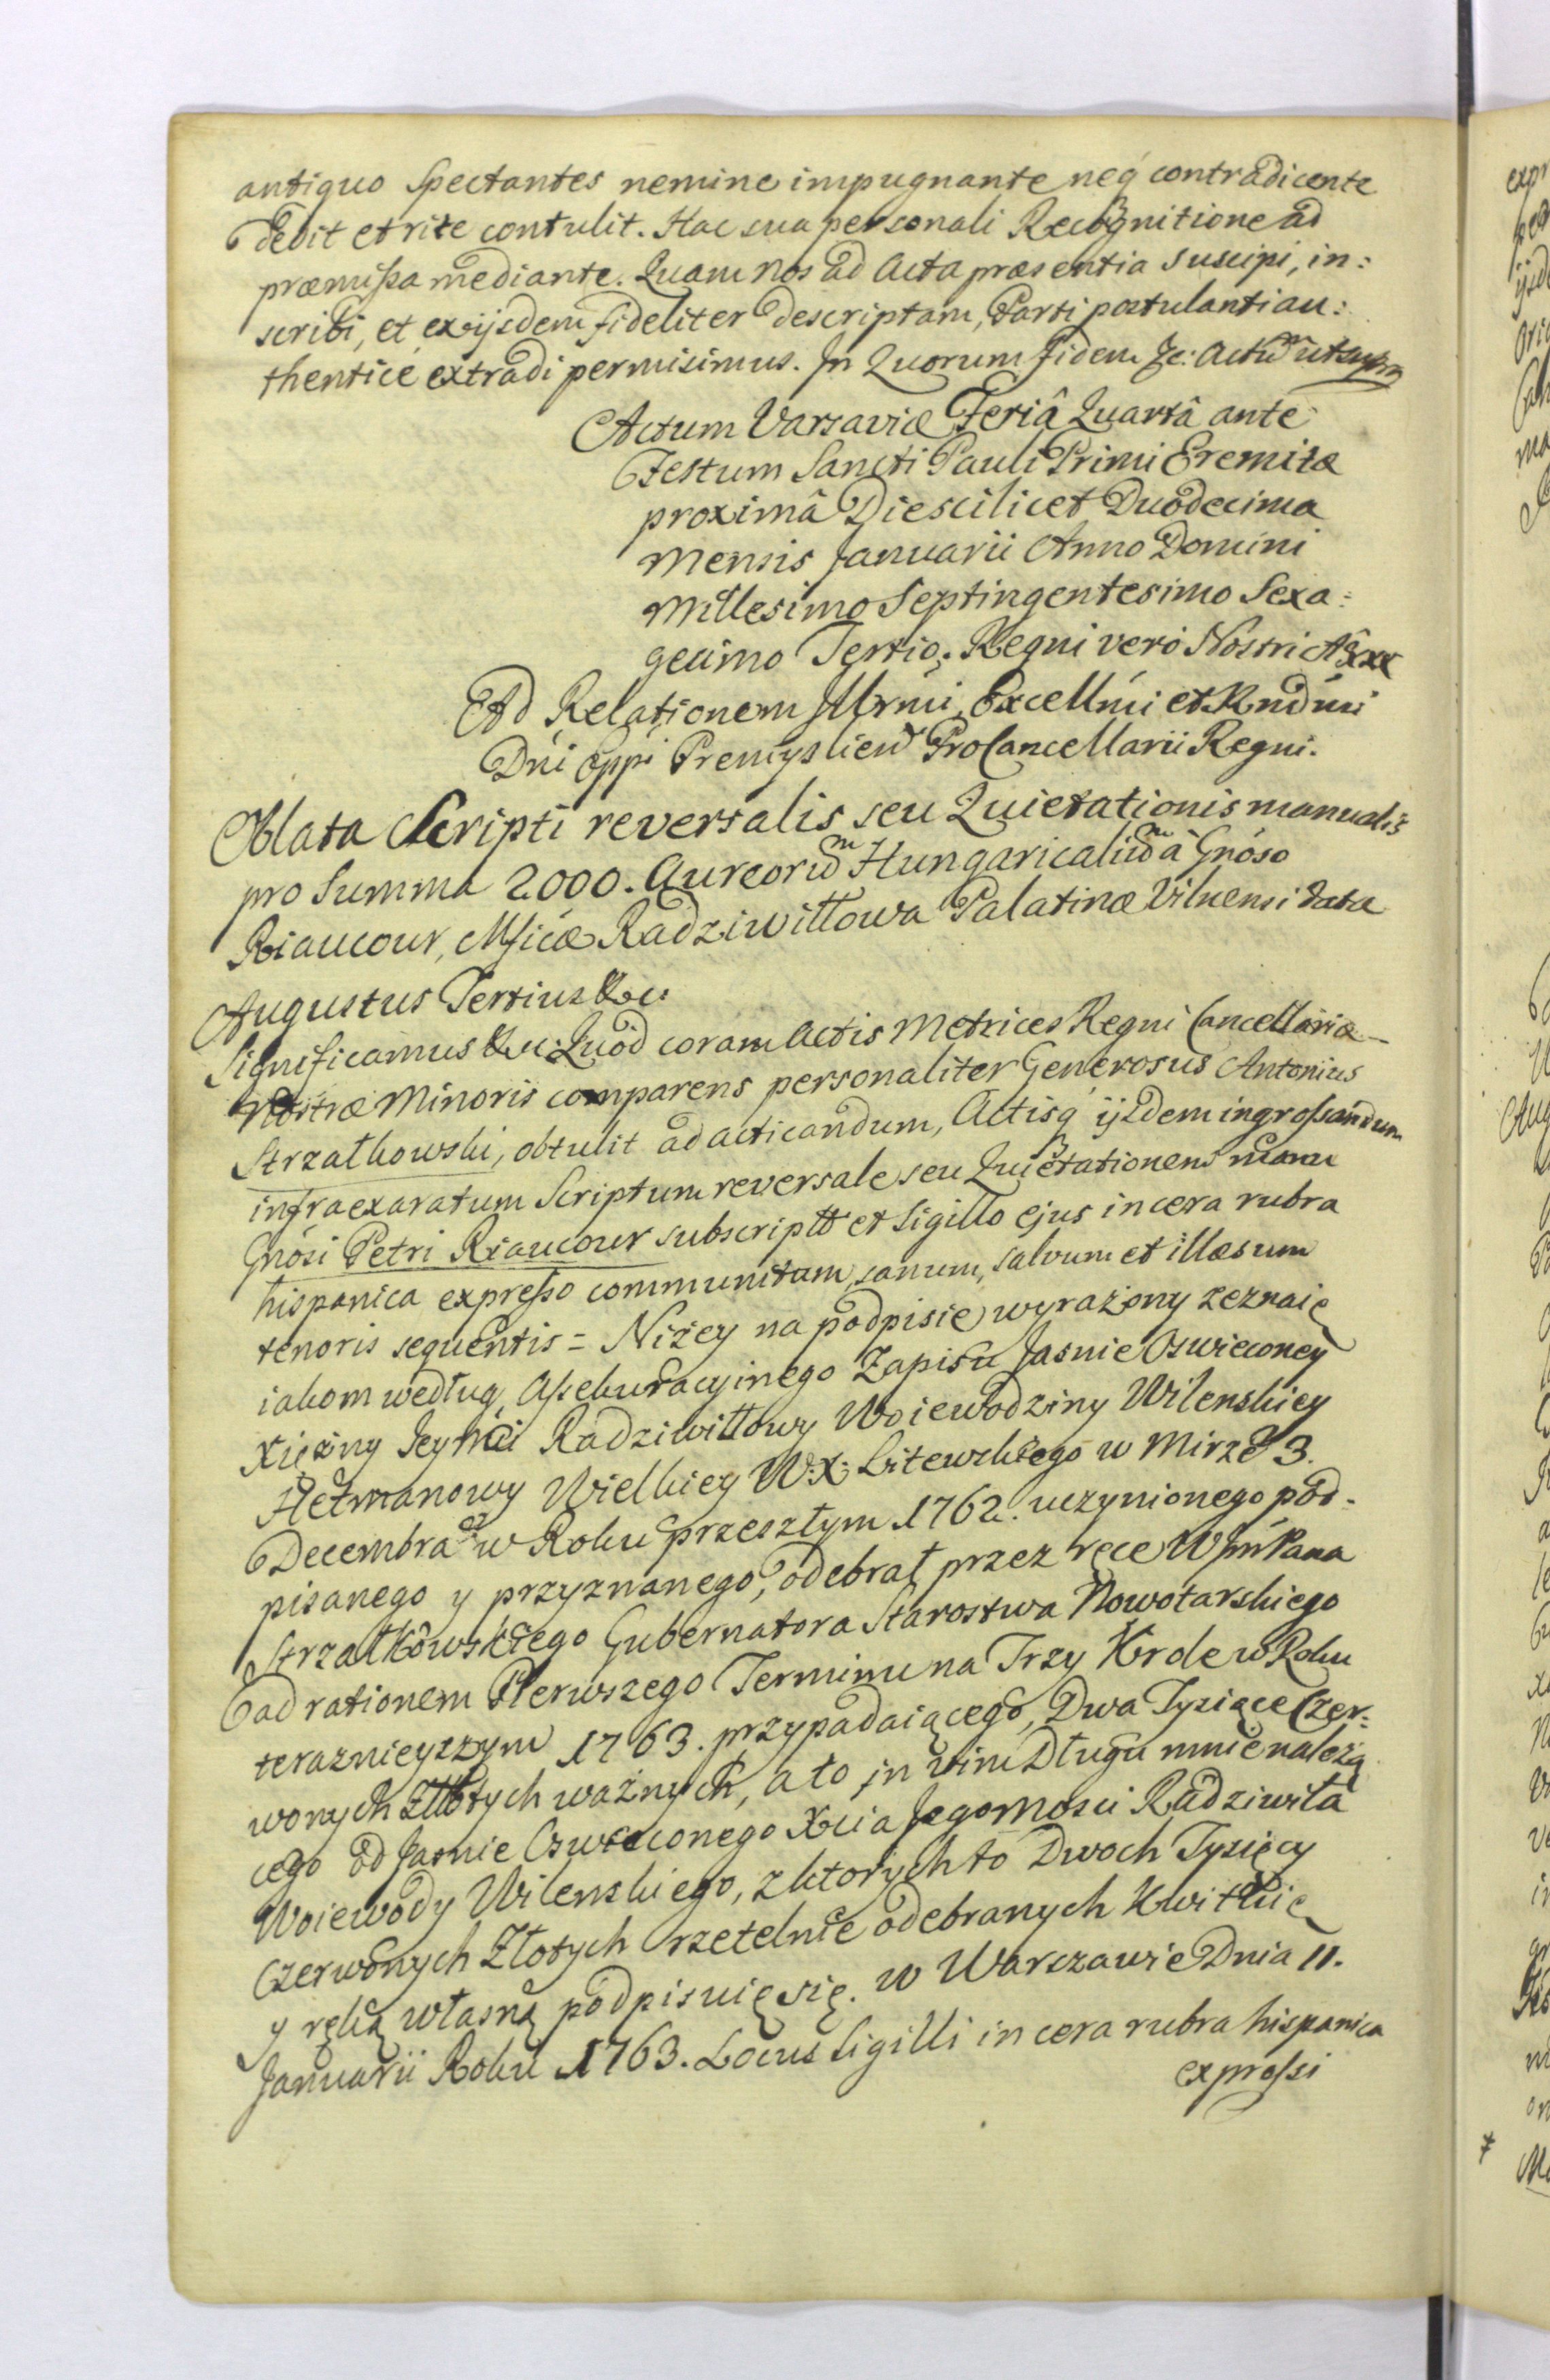 antiquo Spectantes nemine impugnante neq́ contradicente
dedit et rite contulit. Hac sua personali Recognitione ad
præmissa mediante. Quam nos ad Acta præsentia suscipi, in:
scribi, et ex ijsdem fideliter descriptam, Parti postulanti au:
thentice extradi permisimus. In Quorum fidem &c: Actũ ut supra
Actum Varsaviæ Feriâ Quartâ ante
Festum Sancti Pauli Primi Eremitæ
proximâ Die scilicet Duodecima
Mensis Januarii Anno Domini
Millesimo Septingentesimo Sexa:
gesimo Tertio. Regni vero Nostri
Ad Relationem Illrmi, Excellmi et Rndmi
Dni Eppi Premysliens ProCancellarii Regni.
Oblata Scripti reversalis seu Quietationis manualis
pro Summa 2000. Aureorũ Hungaricaliũ â Gnoso
Riaucour, Radziwiłłowa Palatinæ Vilnensi data
Augustus Tertius &c:
Significamus &c: Quod coram Actis Metrices Regni Cancellariæ
Nostræ Minoris comparens personaliter Generosus Antonius
Strzałkowski, obtulit ad acticandum, Actisq́ ijsdem ingrossandum
infraexaratum Scriptum reversale seu Quietationem manu
Gnosi Petri Riaucour subscriptũ et Sigillo ejus in cera rubra
hispanica expresso communitum, sanum, salvum et illæsum
tenoris sequentis = Niżey na podpisie wyrażony zeznaię
iakom według Assekuracyinego Zapisu Jasnie Oswieconey
Xiężny Jeymći Radziwiłłowy Woiewodziny Wilenskiey
Hetmanowy Wielkiey W: X: Litewskiego w Mirze 3.
Decembra w Roku przeszłym 1762. uczynionego pod-
pisanego y przyznanego, odebrał przez ręce W Jmć Pana
Strzałkowskiego Gubernatora Starostwa Nowotarskiego
ad rationem Pierwszego Terminu na Trzy Krole w Roku
teraznieyszym 1763. przypadaiącego, Dwa Tysiące Czer:
wonych Złłotych ważnych, a to in vim Długu mnie należą
cego od Jasnie Oswieconego Xcia Jegomosci Radziwiła
Woiewody Wilenskiego, z ktorych to Dwoch Tysięcy
Czerwonych Złotych rzetelnie odebranych Kwituię
y ręką własną podpisuię się. w Warszawie Dnia 11.
Januarii Roku 1763. Locus Sigilli in cera rubra hispanica
expressi